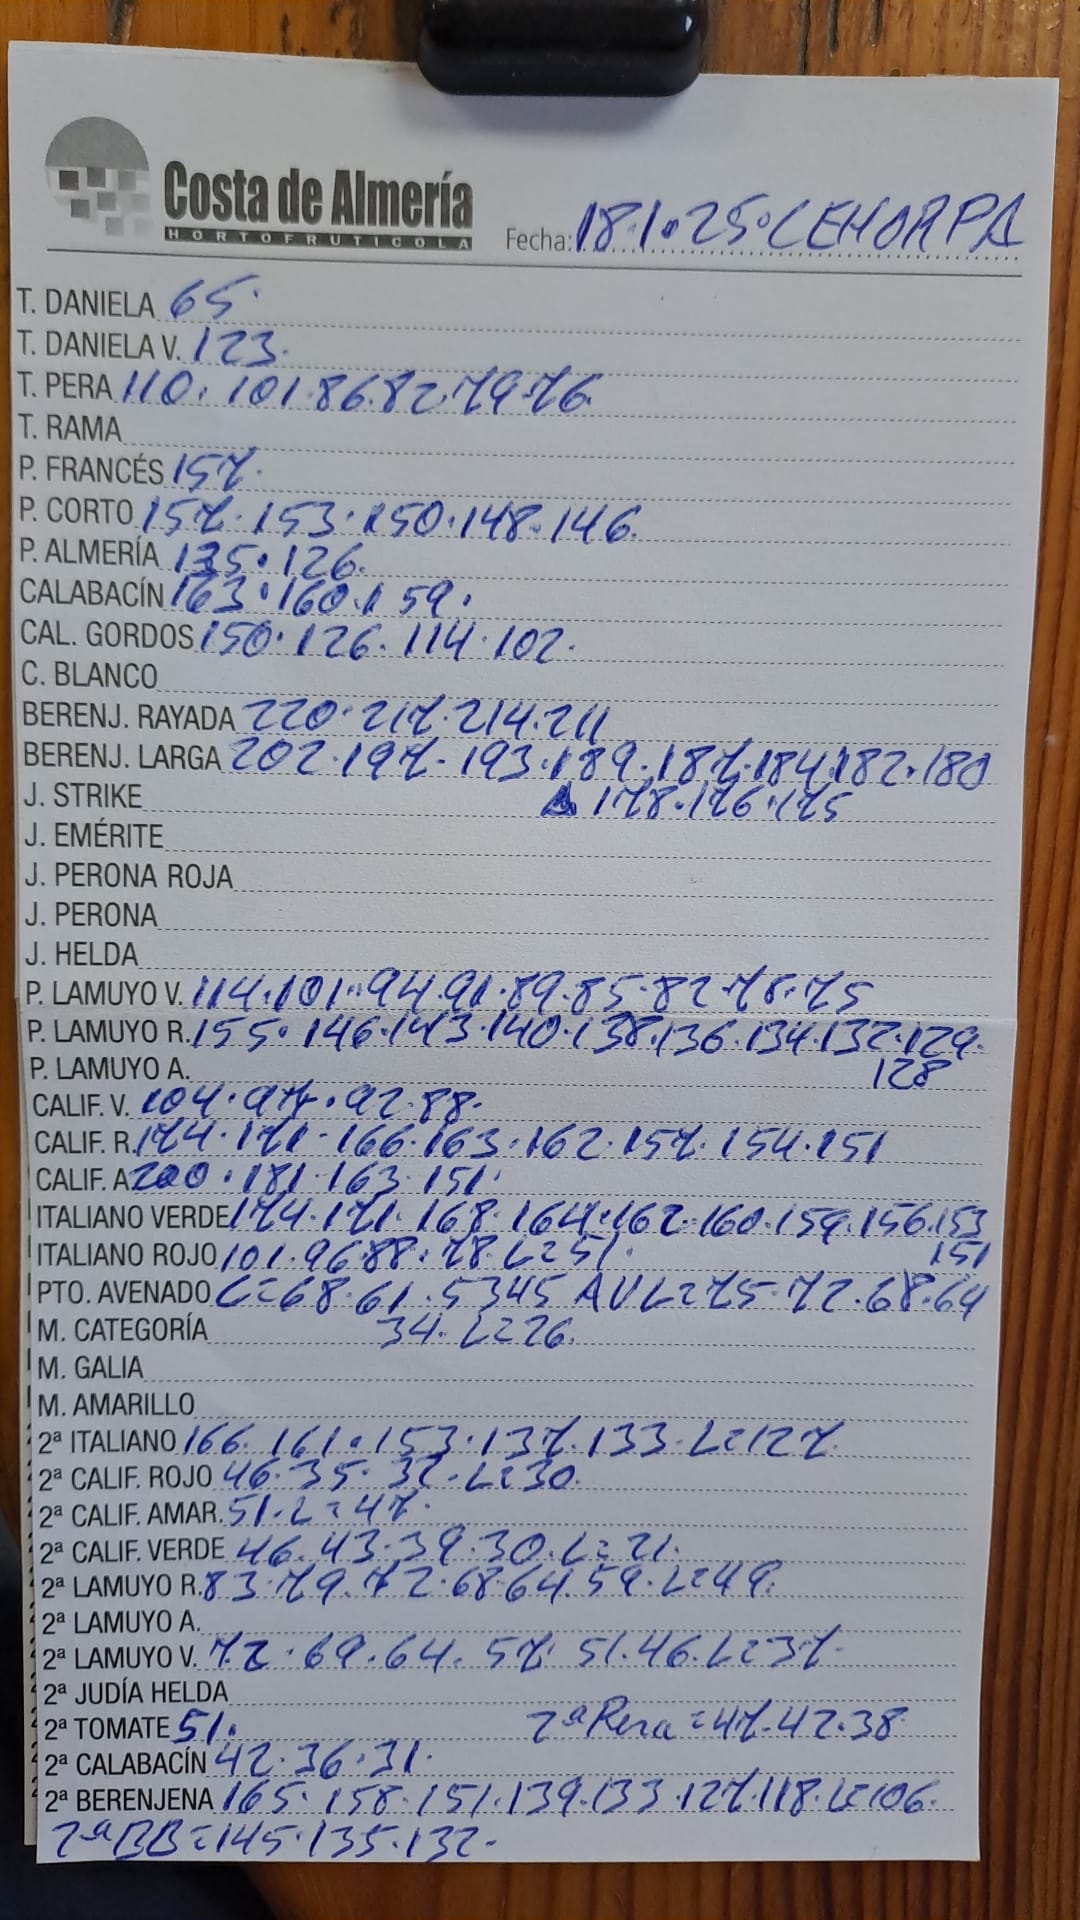 Costa de Almería
HORTOFRUTICOLA
Fecha: 18.1.25. CEHORPA
T. DANIELA 65.
T. DANIELA V. 123.
T. PERA 110. 101.86.82.79.76
T. RAMA
P. FRANCÉS 157.
P. CORTO 157.153.150.148.146.
P. ALMERÍA 135.126.
CALABACÍN 163.160.159.
CAL. GORDOS 150.126.114.102.
C. BLANCO
BERENJ. RAYADA 220.217.214.211
BERENJ. LARGA 202.197.193.189.187.184.182.180
J. STRIKE 178.176.175
J. EMÉRITE
J. PERONA ROJA
J. PERONA
J. HELDA
P. LAMUYO V. 114.101.94.91.89.85.82.78.75
P. LAMUYO R. 155.146.143.140.138.136.134.132.129.
P. LAMUYO A. 128
CALIF. V. 104.97.92.88.
CALIF. R. 174.171.166.163.162.157.154.151
CALIF. A 200.181.163.151.
ITALIANO VERDE 174.171.168.164.162.160.159.156.153
ITALIANO ROJO 101.96.88.78.L=51. 151
PTO. AVENADO C=68.61.5345 AVL=75.72.68.64
M. CATEGORÍA 34.L=26.
M. GALIA
M. AMARILLO
2ª ITALIANO 166.161.153.137.133.L=127.
2ª CALIF. ROJO 46.35.32.L=30.
2ª CALIF. AMAR. 51.L=47.
2ª CALIF. VERDE 46.43.39.30.L=21.
2ª LAMUYO R. 83.79.72.68.64.59.L=49.
2ª LAMUYO A.
2ª LAMUYO V. 72.69.64.57.51.46.L=37.
2ª JUDÍA HELDA
2ª TOMATE 51. 2ª Pera=47.42.38.
2ª CALABACÍN 42.36.31.
2ª BERENJENA 165.158.151.139.133.127.118.L=106.
2ªBB=145.135.132.